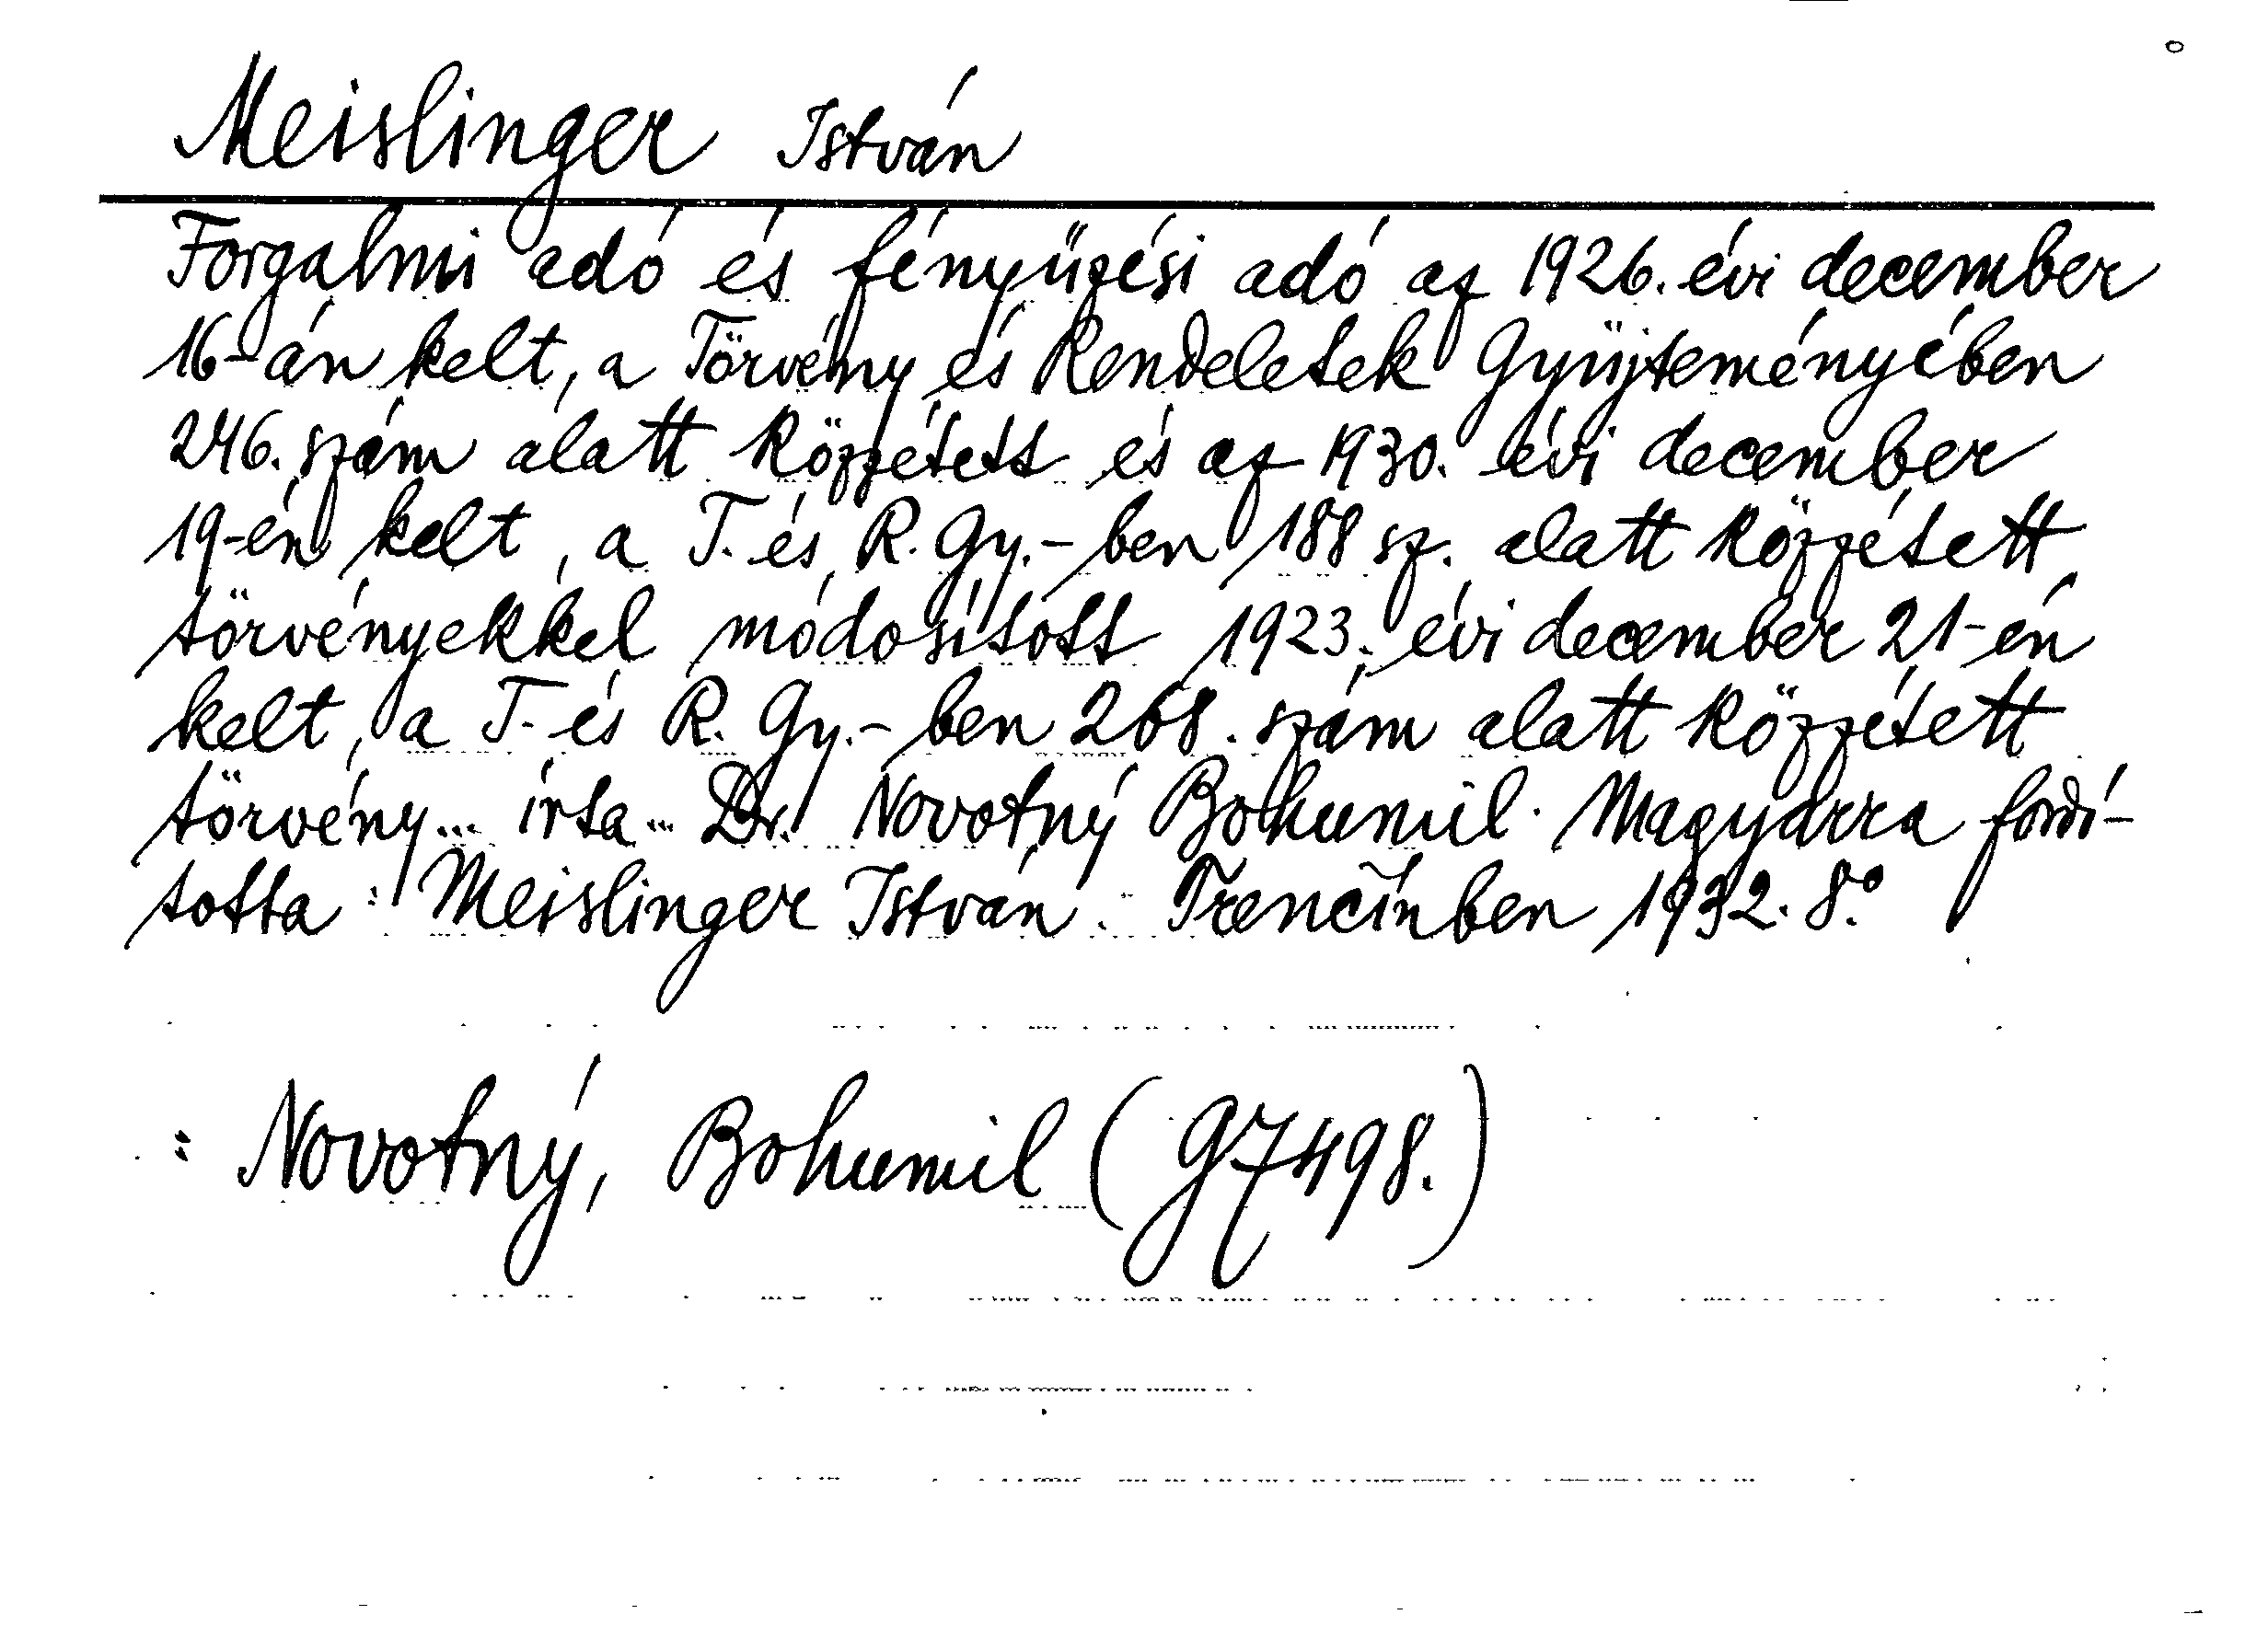 Meislinger István
Forgalmi adó és fényűzési adó az 1926. évi december
16-án kelt, a Törvény és Rendeletek Gyüjteményében
246. szám alatt közzétett és az 1930. évi december
19-én kelt, a T. és R. Gy.-ben 188 sz. alatt közzétett
törvényekkel módosított 1923. évi december 21-én
kelt, a T. és R. Gy.-ben 268. szám alatt közzétett
törvény... írta... Dr. Novotný Bohumil. Magyarra fordí-
totta: Meislinger István. Trenčínben 1932. 8.°
: Novotný, Bohumil (97498.)